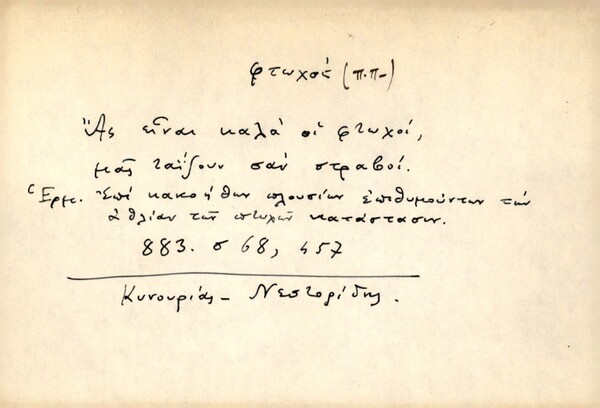 φτωχός (π.π-)
Ἂς εἶναι καλὰ οἱ φτωχοί,
μᾶς ταΐζουν σὰν στραβοί.
Ἑρμ. Ἐπὶ κακοήθων πλουσίων ἐπιθυμούντων τὴν
ἀθλίαν τῶν πτωχῶν κατάστασιν.
883. σ 68, 457
Κυνουρίας - Νεστορίδης.